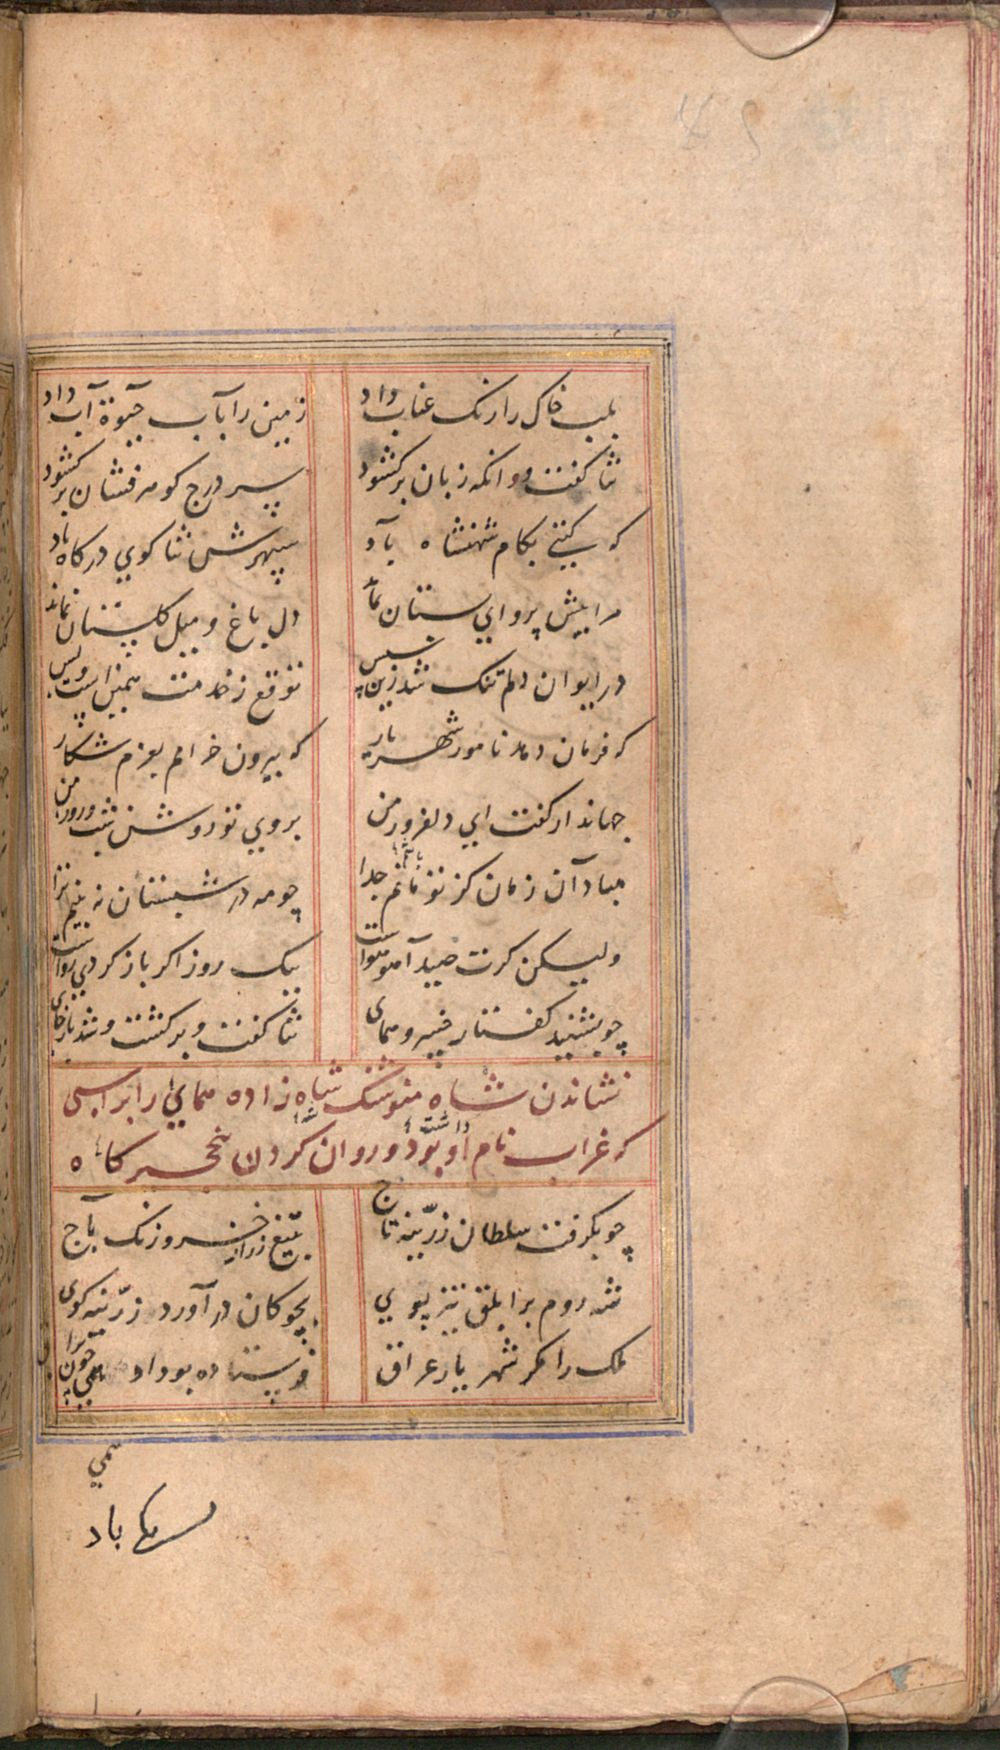 بلب خاک را رنک عناب داد زمین را بآب حیوة آب داد
ثنا کفت و وانکه زبان برکشود سر درج کوهر فشان برکشود
که کیتی بکام شهنشاه باد سپهرش ثنا کوی درکاه باد
مرا بیش پروای بستان نماند دل باغ و میل کلستان نماند
در ایوان دلم تنک شد زین سپس توقع ز خدمت همین است و بس
که فرمان دهد نامور شهریار که بیرون خرامم بعزم شکار
جهاندار کفت ای دلفروز من بروی تو روشن شب و روز من
مباد آن زمان کز تو مانم جدا چو مه در شبستان نه بینم ترا
ولیکن کرت صید آهو هواست بیک روز اکر باز کردی رواست
چو بشنید کفتار خسرو همای ثنا کفت و برکشت و شد باز جای
نشاندن شاه منوشنک شاه زاده همای را بر اسبی
که غراب نام او بود و روان کردن نخجیر کاه
چو بکرفت سلطان زرینه تاج بتیغ زر از خسرو زنک باج
شه روم بر ابلق تیز پوی بچوکان در آورد زرینه کوی
ملک را مکر شهریار عراق فرستاده بود
همی
باد